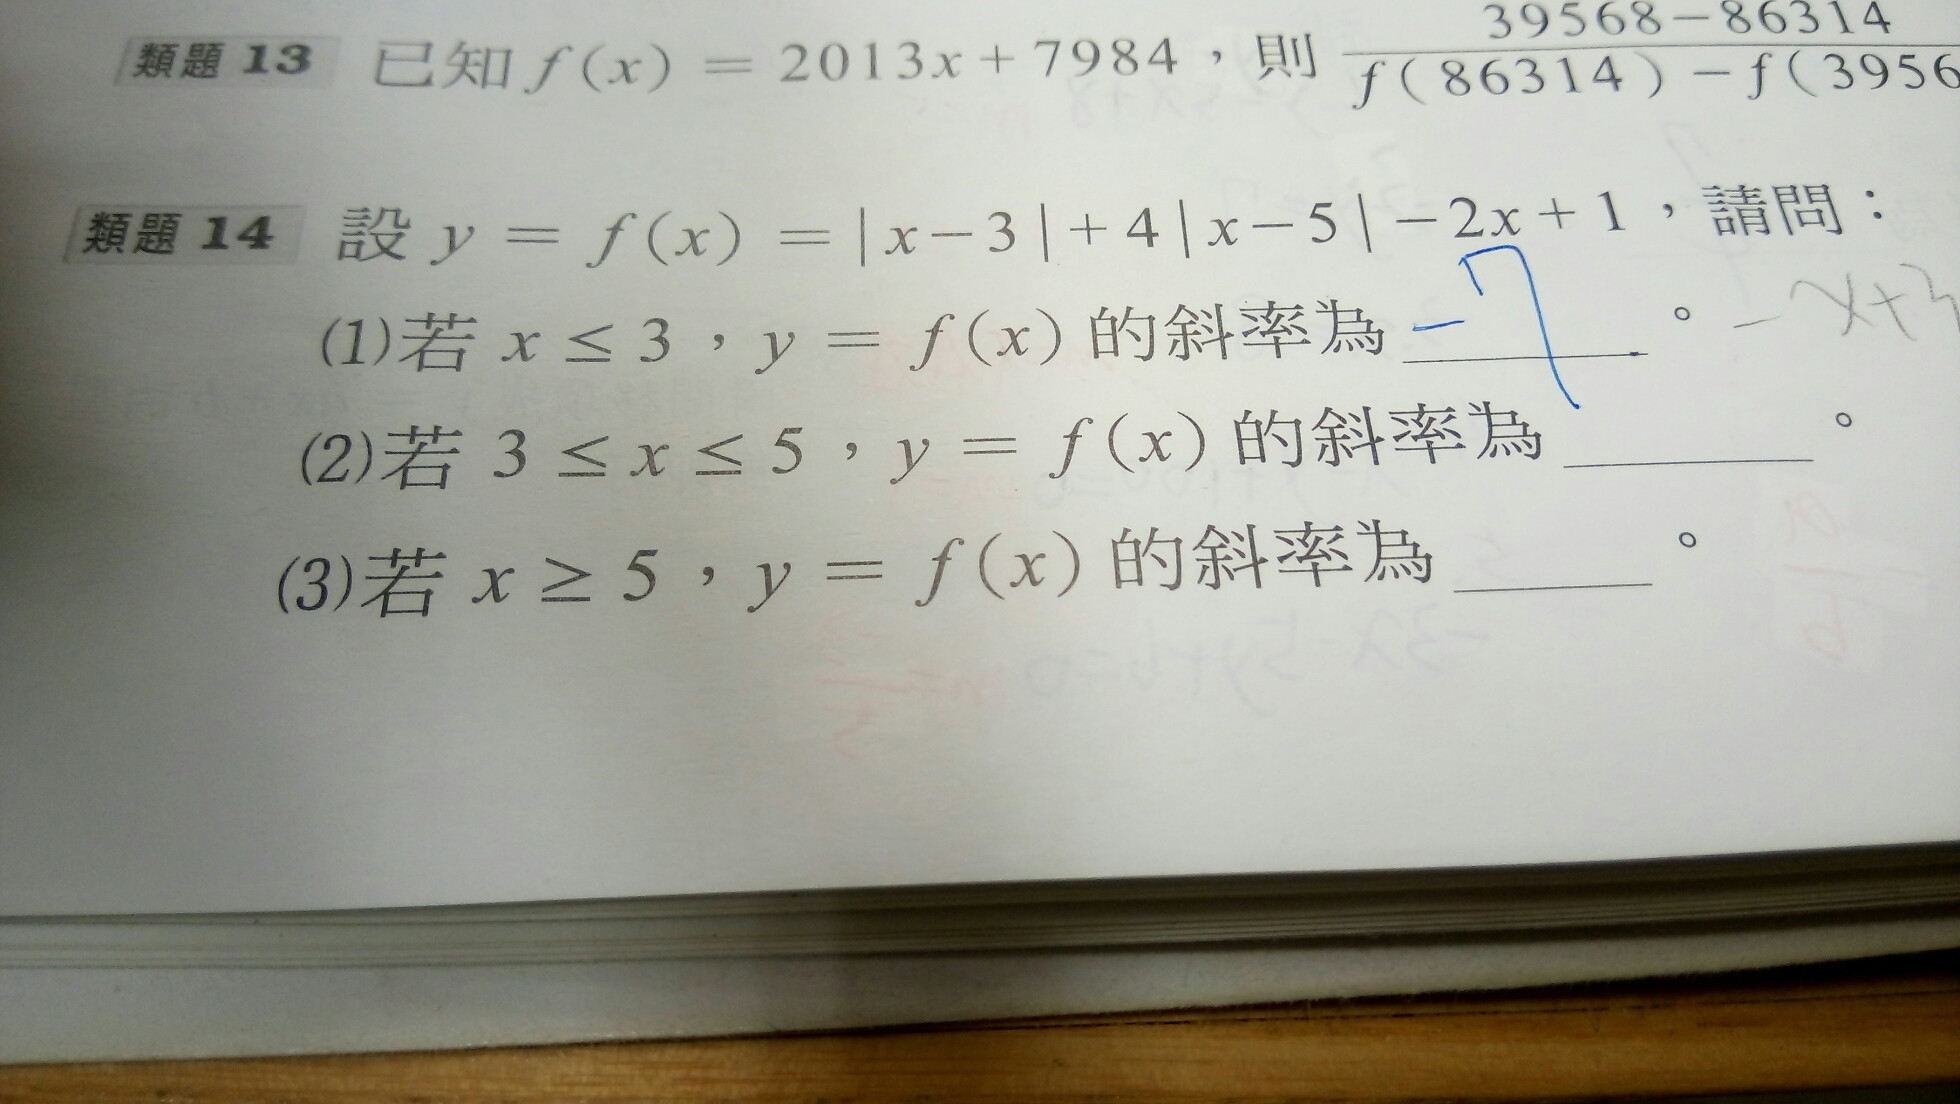 類題 13 已知 f(x) = 2013x + 7984，則 39568－86314
f(86314) － f(3956
類題 14 設 y = f(x) = |x－3|＋4|x－5|－2x＋1，請問：
(1)若 x ≤ 3，y = f(x) 的斜率為 －7 。 －x+3
(2)若 3 ≤ x ≤ 5，y = f(x) 的斜率為 ______ 。
(3)若 x ≥ 5，y = f(x) 的斜率為 ______ 。